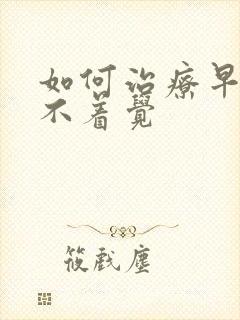 如何治療早
不着覺
筱戲塵